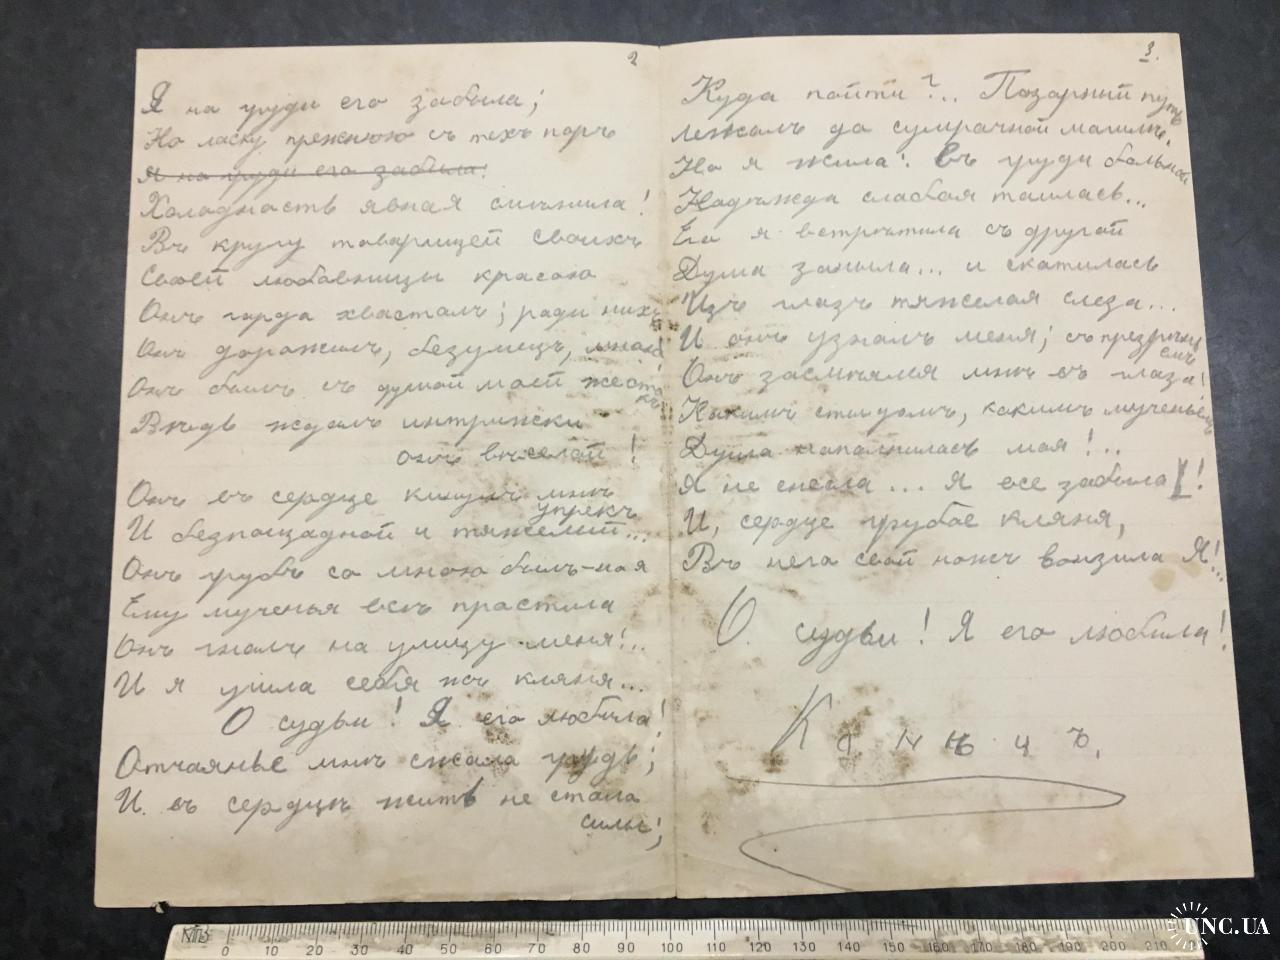 2
Я на груди его забыла;
Но ласку прежнюю съ техъ поръ
Я на груди его забыла!
Холодность явная смѣнила!
Въ кругу товарищей своихъ
Своей любовницы красою
Онъ гордо хвасталъ; ради нихъ
Онъ дорожилъ, безумецъ, мною!
Онъ былъ съ душой моей жестокъ
Вѣдь ждалъ интрижки
онъ веселой!
Онъ въ сердце кинулъ мнѣ
упрекъ
И безпощадной и тяжелий...
Онъ грубъ со мною былъ-но я
Ему мученья всѣ простила
Онъ гналъ на улицу меня!..
И я ушла себя же кляня...
О судьи! Я его любила!
Отчаянье мнѣ сжало грудь;
И въ сердцѣ жить не стало
силы!
3.
Куда пойти?.. Позорний путь
лежалъ до сумрачной могилы.
Но я жила: въ груди больной
Надѣжда слабая таилась...
Его я встрѣтила съ другой
Душа заныла... и скатилась
Изъ глазъ тяжелая слеза...
И онъ узналъ меня; съ презрѣнь
емъ
Онъ засмѣялся мнѣ въ глаза!
Какимъ стидомъ, какимъ мученьемъ
Душа наполнилась моя!..
Я не снесла... Я все забыла!
И, сердце грубое кляня,
Въ него свой ножъ вонзила Я!..
О судьи! Я его любила!
Конѣцъ.
КТПБ
0 10 20 30 40 50 60 70 80 90 100 110 120 130 140 150 160 170 180 190 200 210
UNC.UA